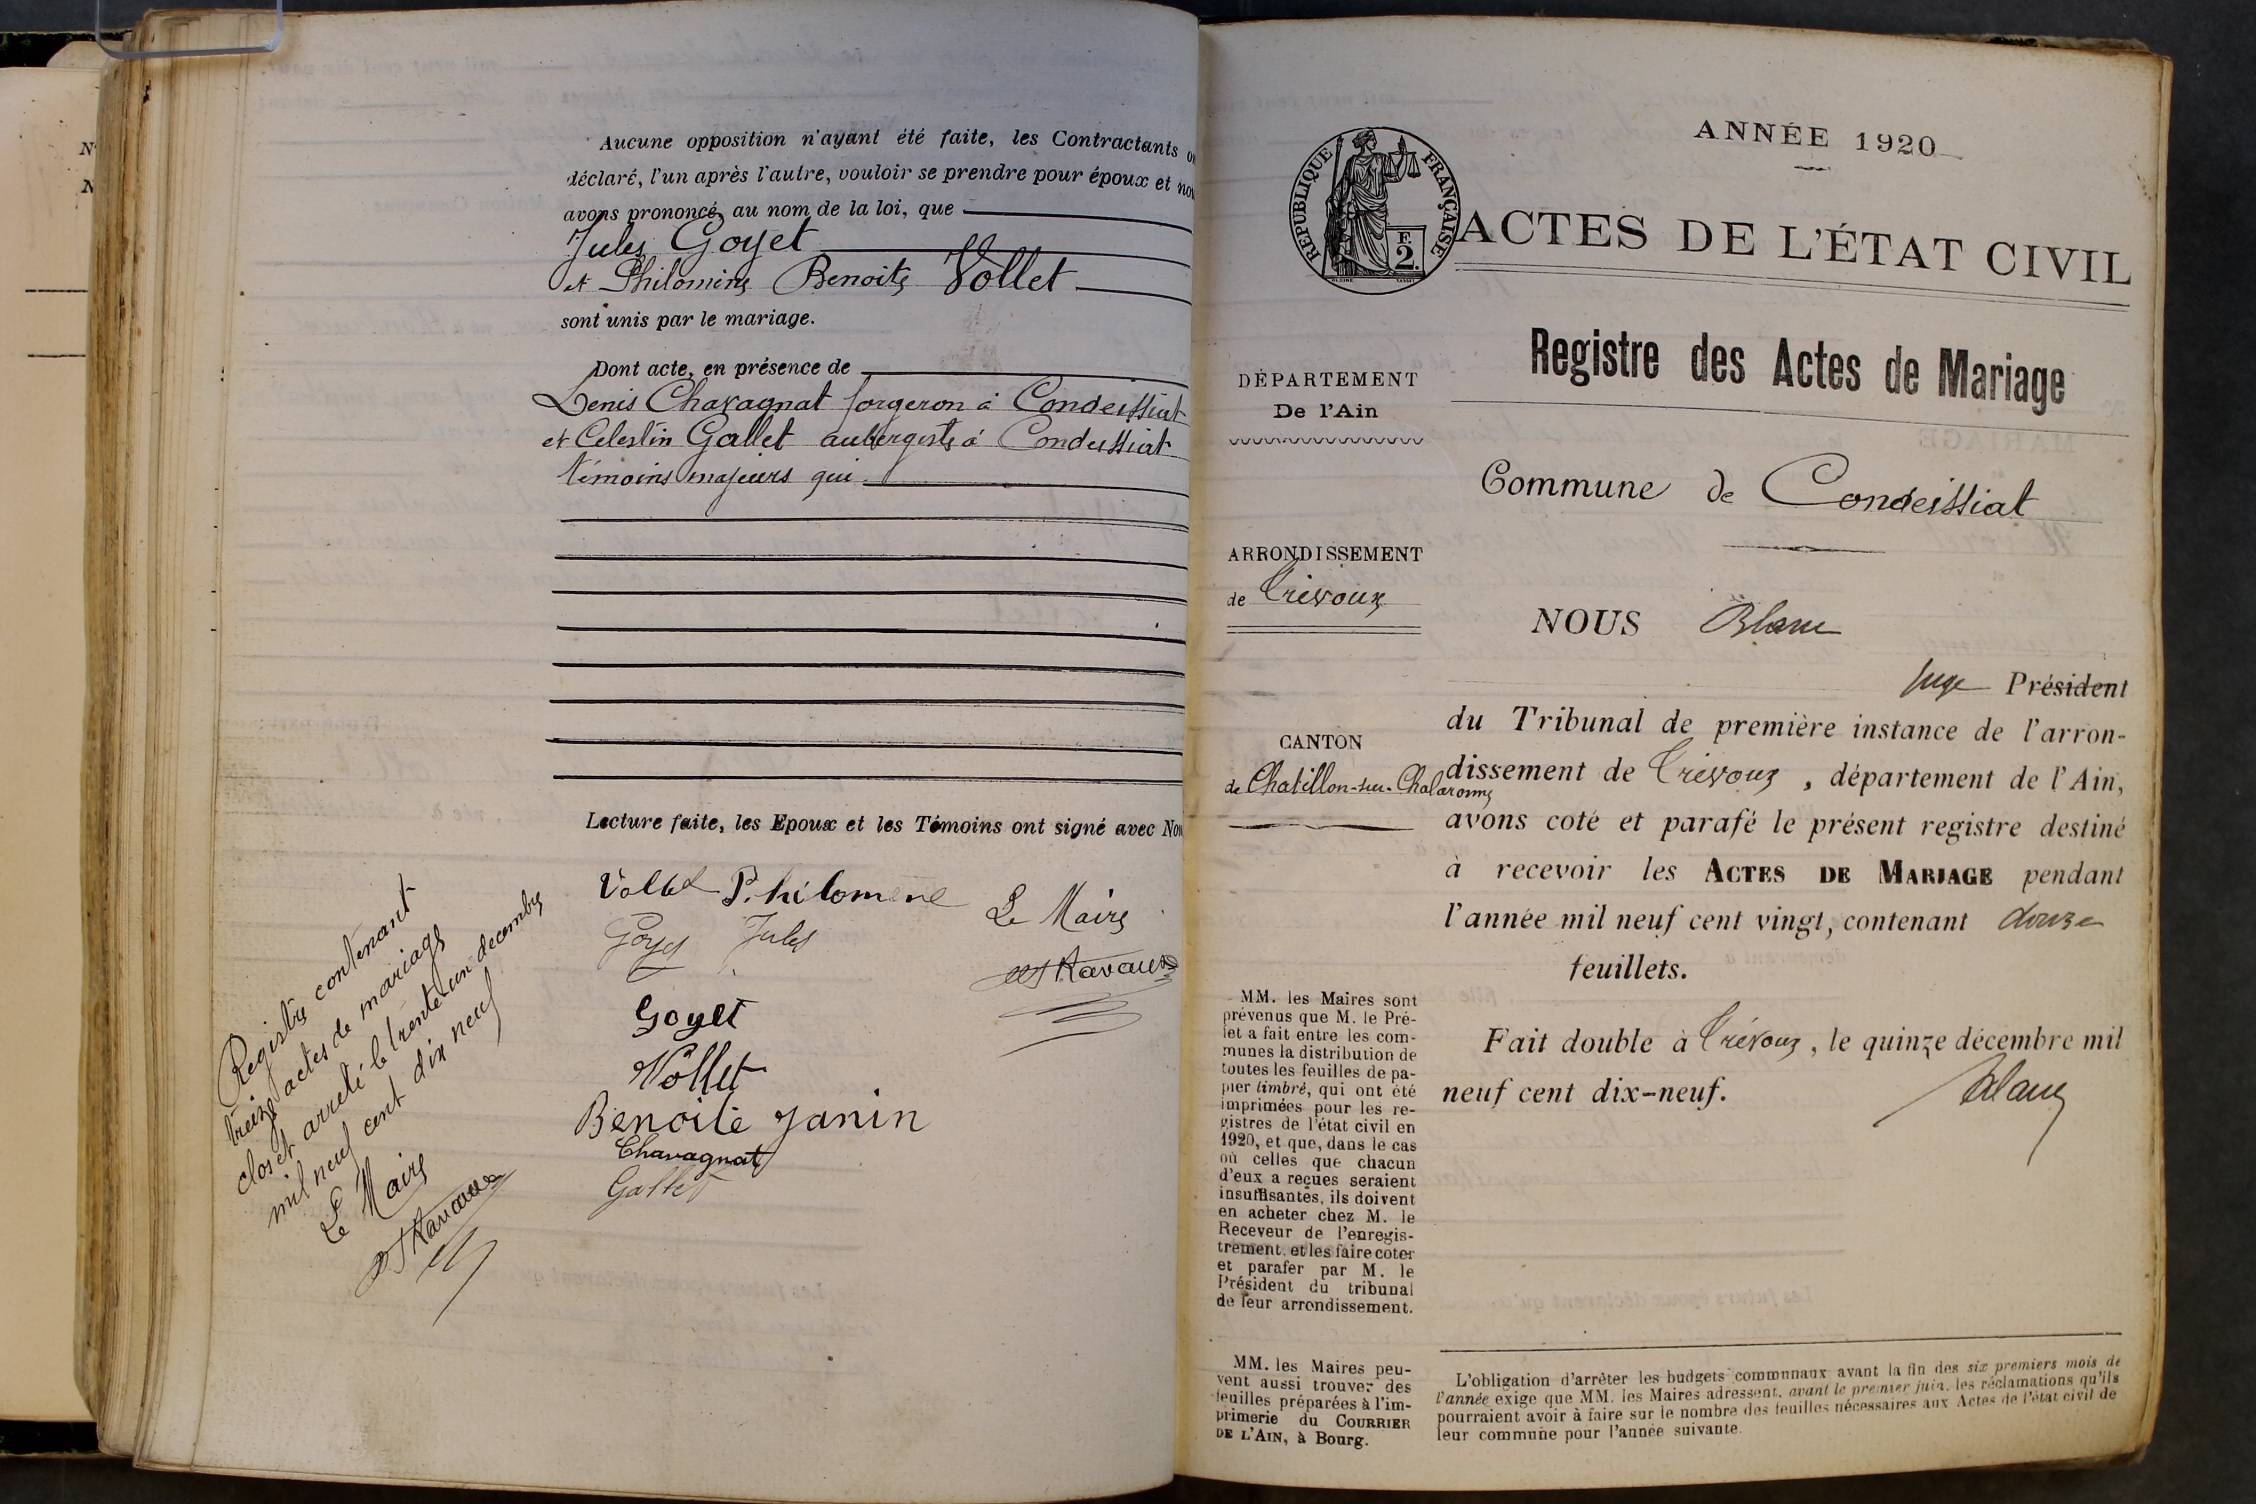 Aucune opposition n'ayant été faite, les Contractants
déclaré, l'un après l'autre, vouloir se prendre pour époux et
avons prononcé, au nom de la loi, que
Jules Goyet
et Philomène Benoite Vollet
sont unis par le mariage.
Dont acte, en présence de
Denis Chavagnat forgeron à Condeissiat
et Celestin Gallet aubergiste à Condeissiat
témoins majeurs qui
Lecture faite, les Epoux et les Témoins ont signé avec
Vollet Philomene
Goyet Jules
Le Maire
Goyet
Vollet
Benoite Janin
Chavagnat
Gallet
Registre contenant
treize actes de mariage
clos et arreté le trente un decembre
mil neuf cent dix neuf
Le Maire
ANNÉE 1920
RÉPUBLIQUE FRANÇAISE
F.
2.
ACTES DE L'ÉTAT CIVIL
Registre des Actes de Mariage
DÉPARTEMENT
De l'Ain
Commune de Condeissiat
ARRONDISSEMENT
de Trévoux
NOUS Blanc
Juge Président
du Tribunal de première instance de l'arron-
dissement de Trévoux, département de l'Ain,
avons coté et parafé le présent registre destiné
à recevoir les ACTES DE MARIAGE pendant
l'année mil neuf cent vingt, contenant douze
feuillets.
Fait double à Trévoux, le quinze décembre mil
neuf cent dix-neuf.
Blanc
CANTON
de Chatillon-sur-Chalaronne
MM. les Maires sont
prévenus que M. le Pré-
fet a fait entre les com-
munes la distribution de
toutes les feuilles de pa-
pier timbré, qui ont été
imprimées pour les re-
gistres de l'état civil en
1920, et que, dans le cas
où celles que chacun
d'eux a reçues seraient
insuffisantes, ils doivent
en acheter chez M. le
Receveur de l'enregis-
trement, et les faire coter
et parafer par M. le
Président du tribunal
de leur arrondissement.
MM. les Maires peu-
vent aussi trouver des
feuilles préparées à l'im-
primerie du COURRIER
DE L'AIN, à Bourg.
L'obligation d'arrêter les budgets communaux avant la fin des six premiers mois de
l'année exige que MM. les Maires adressent, avant le premier juin, les réclamations qu'ils
pourraient avoir à faire sur le nombre des feuilles nécessaires aux Actes de l'état civil de
leur commune pour l'année suivante.